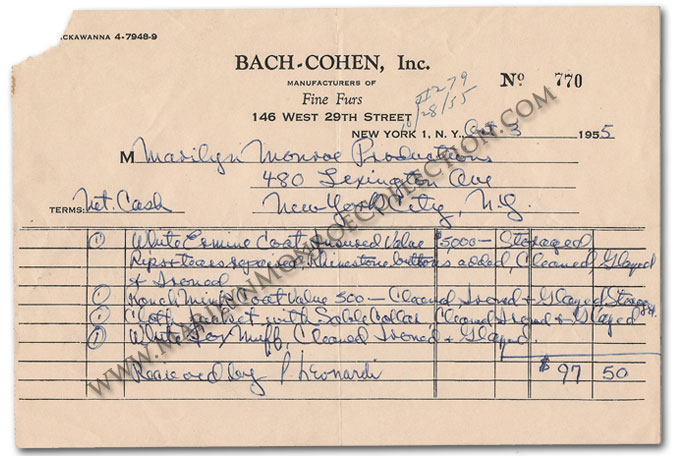 CKAWANNA 4-7948-9
BACH-COHEN, Inc.
MANUFACTURERS OF
Fine Furs
146 WEST 29TH STREET
Nº 770
#1279
10/28/55
NEW YORK 1, N. Y., Oct 3 1955
M Marilyn Monroe Productions
480 Lexington Ave
TERMS: Net. Cash New York City, N.Y.
1 White Ermine Coat, Insured Value $5000 — Storaged,
Rips or tears repaired Rhinestone buttons added, Cleaned, Glazed
& Ironed
1 Mink Coat Value 500 — Cleaned Ironed & Glazed
1 Cloth with Sable Collar, Cleaned Ironed & Glazed
1 White Fox Muff, Cleaned Ironed & Glazed.
$ 97 50
Received by P Leonardi
WWW.MARILYNMONROECOLLECTION.COM